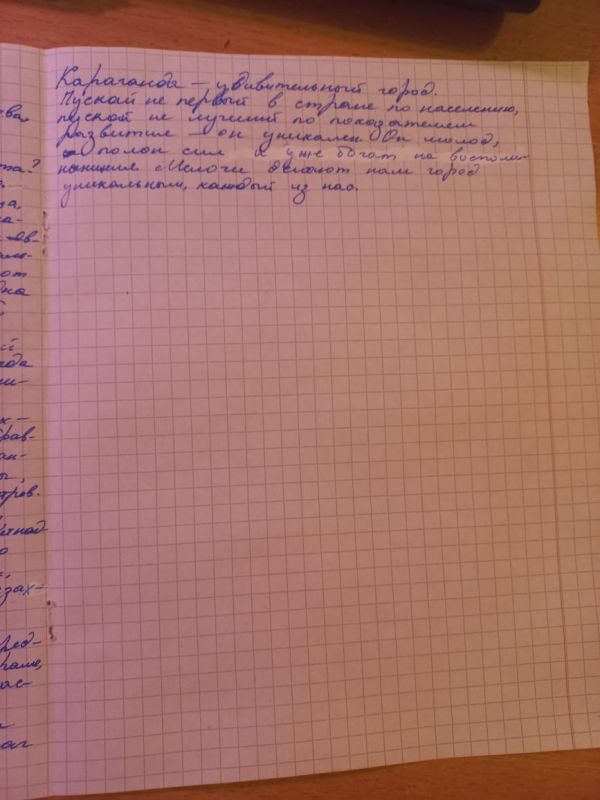 Караганда – удивительный город.
Пускай не первый в стране по населению,
пускай не лучший по показателем
развитие – он уникален. Он молод,
полон сил и уже богат на воспоми-
нания. Мелочи делают нам город
уникальным, каждый из нас.
ва
та?
ца,
на-
ов-
от
на
й
ода
ни-
х-
рав-
ан-
ы,
тров.
тной
о
зах-
ред-
раме,
ас-